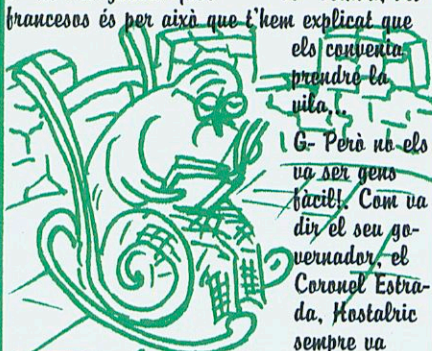 francesos és per això que t'hem explicat que
els convenia
prendre la
vila,!..
G.- Però no els
va ser gens
fàcil!. Com va
dir el seu go-
vernador, el
Coronel Estra-
da, Hostalric
sempre va